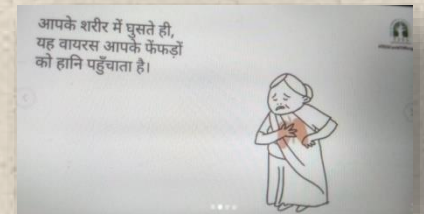 आपके शरीर में घुसते ही,
यह वायरस आपके फेंफड़ों
को हानि पहुँचाता है।